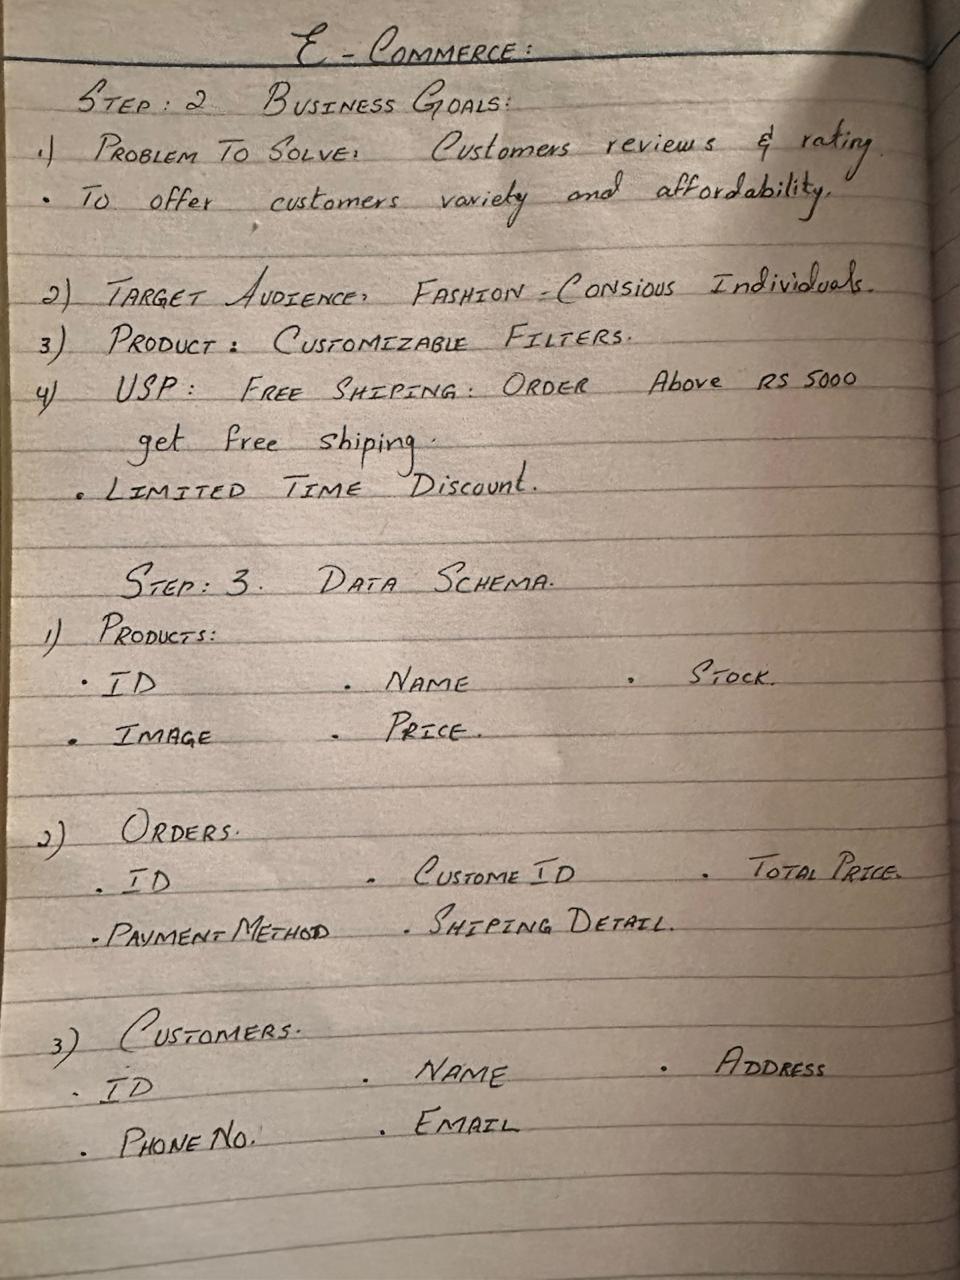 E - COMMERCE:
STEP: 2 BUSINESS GOALS:
1) PROBLEM TO SOLVE: Customers reviews & rating.
• To offer customers variety and affordability.
2) TARGET AUDIENCE: FASHION - CONSIOUS Individuals.
3) PRODUCT: CUSTOMIZABLE FILTERS.
4) USP: FREE SHIPING: ORDER Above RS 5000
get free shiping.
• LIMITED TIME Discount.
STEP: 3. DATA SCHEMA.
1) PRODUCTS:
• ID • NAME • STOCK.
• IMAGE • PRICE.
2) ORDERS.
• ID • CUSTOME ID • TOTAL PRICE.
• PAYMENT METHOD • SHIPING DETAIL.
3) CUSTOMERS.
• ID • NAME • ADDRESS
• PHONE NO. • EMAIL